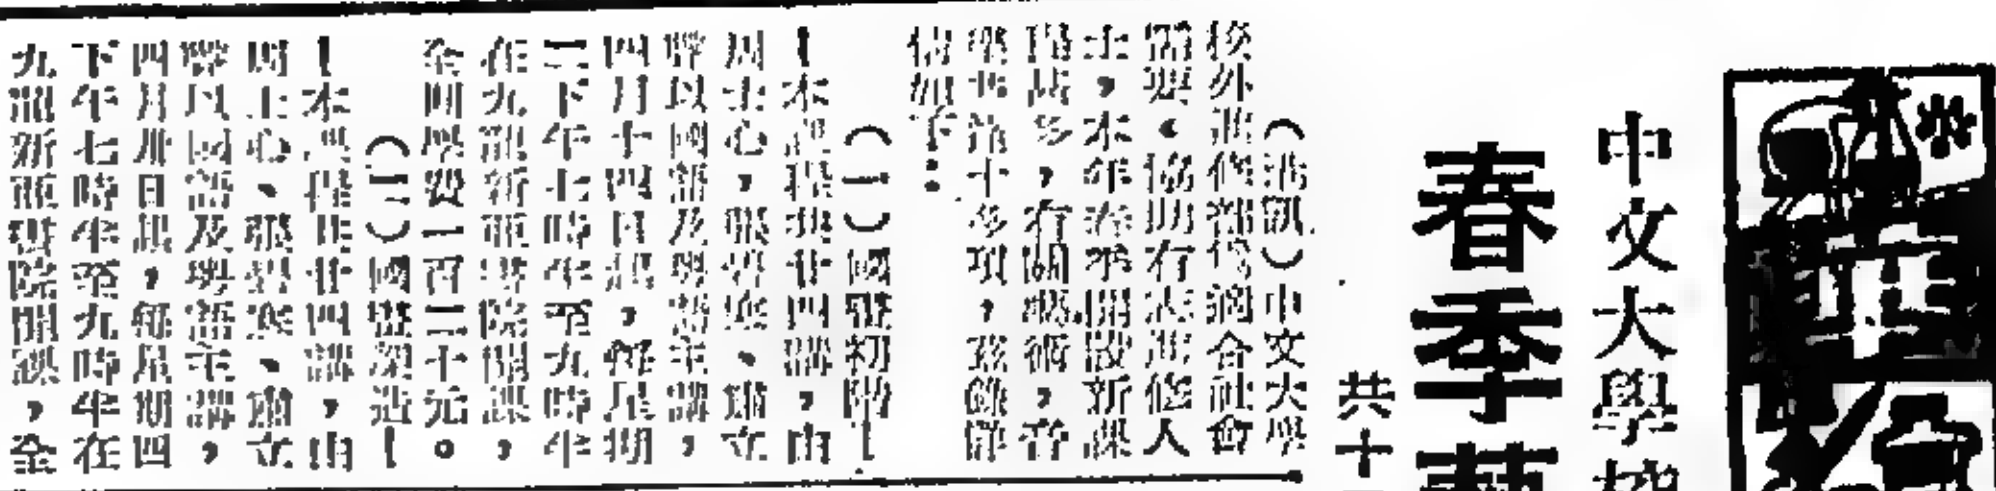 中文大學校
春季藝
共十
(港訊)中文大學
校外進修部為適合社會
需要,協助有志進修人
士,本年春季開設新課
程甚多,有關藝術,音
樂舊十多項,茲錄詳
情如下:
(一)國聲初階—
本課程共廿四講,由
周士心,張碧寒、蕭立
聲以國語及粵語主講,
四月十四日起,每星期
二下午七時半至九時半
在九龍新亞書院開課,
全期學費一百二十元。
(二)國聲深造—
本課程共廿四講,由
周士心、張碧寒、蕭立
聲以國語及粵語主講,
四月卅日起,每星期四
下午七時半至九時半在
九龍新亞書院開課,全